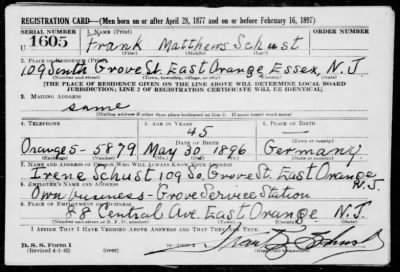 REGISTRATION CARD—(Men born on or after April 28, 1877 and on or before February 16, 1897)
SERIAL NUMBER 1. NAME (Print) ORDER NUMBER
U 1605 Frank Matthews Schust
2. PLACE OF RESIDENCE (Print)
109 South Grove St. East Orange Essex, N.J.
[THE PLACE OF RESIDENCE GIVEN ON THE LINE ABOVE WILL DETERMINE LOCAL BOARD
JURISDICTION; LINE 2 OF REGISTRATION CERTIFICATE WILL BE IDENTICAL]
3. MAILING ADDRESS
same
[Mailing address if other than place indicated on line 2. If same insert word same]
4. TELEPHONE 5. AGE IN YEARS 6. PLACE OF BIRTH
45 —
DATE OF BIRTH (Town or county)
Orange 5-5879 May 30 1896 Germany
(Exchange) (Number) (Mo.) (Day) (Yr.) (State or country)
7. NAME AND ADDRESS OF PERSON WHO WILL ALWAYS KNOW YOUR ADDRESS
Irene Schust 109 So. Grove St. East Orange N.J.
8. EMPLOYER'S NAME AND ADDRESS
Own business-Grove Service Station
9. PLACE OF EMPLOYMENT OR BUSINESS
68 Central Ave. East Orange N.J.
(Number and street or R. F. D. number) (Town) (County) (State)
I AFFIRM THAT I HAVE VERIFIED ABOVE ANSWERS AND THAT THEY ARE TRUE.
D. S. S. Form 1
(Revised 4-1-42) (over)